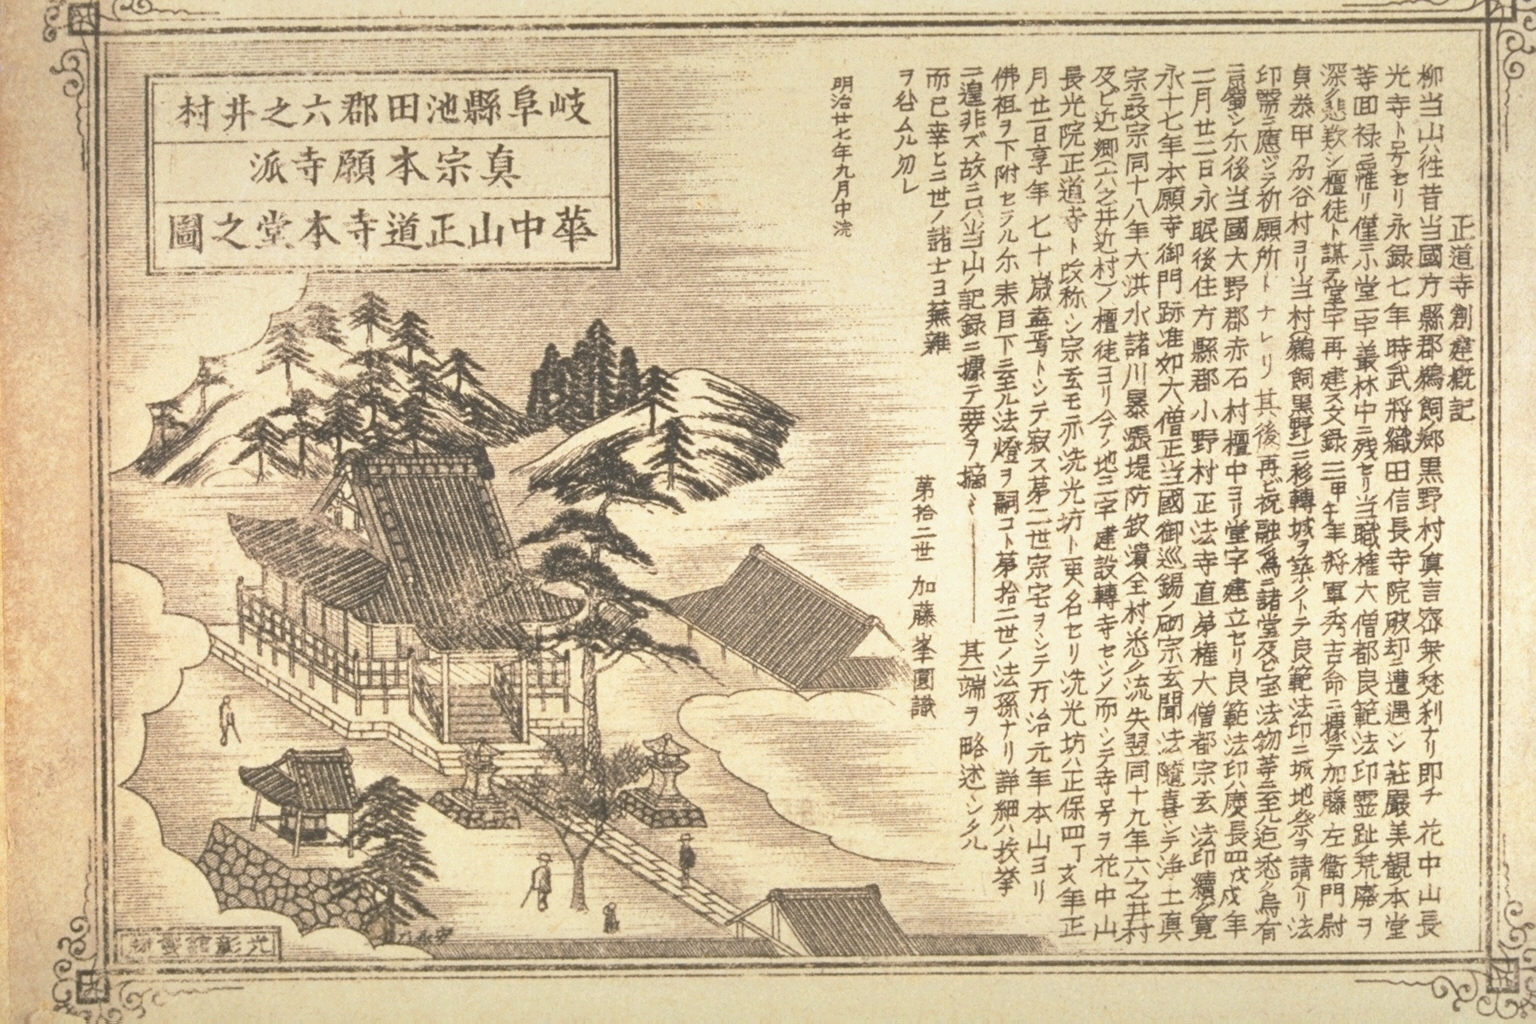 岐阜縣池田郡六之井村
真宗本願寺派
華中山正道寺本堂之圖
正道寺創建概記
柳当山ハ往昔当國方縣郡鵜飼ノ郷黒野村ノ真言宗ノ梵刹ナリ即チ花中山長
光寺ト号セリ永録七年時武將織田信長寺院破却ニ遭遇シ荘嚴美觀本堂
等回禄ニ罹リ僅ニ小堂二宇叢林中ニ残セリ当職権大僧都良範法印霊趾ノ荒廢ヲ
深ク悲歎シ檀徒ト謀テ堂宇再建ス文録三甲午年将軍秀吉ノ命ニ據テ加藤左衛門尉
貞泰甲刕谷村ヨリ当村(鵜飼黒野)ニ移轉城ヲ築クトテ良範法印ニ城地祭ヲ請ヘリ法
印幣ニ應ジテ祈願所トナレリ其後再ビ祝融ノ為ニ諸堂及ビ宝法物等ニ至ル迄悉ク烏有
ニ属シ尓後当國大野郡赤石村檀中ヨリ堂宇建立セリ良範法印ハ慶長四戊戌年
二月廿二日永眠後住方縣郡小野村正法寺直弟権大僧都宗玄法印續ク寛
永十七年本願寺御門跡准如大僧正当國御巡錫ノ砌宗玄聞法隨喜シテ浄土真
宗ニ改宗同十八年大洪水諸川暴漲堤防欽潰全村悉ク流失翌同十九年六之井村
及ビ近郷(六之井近村)ノ檀徒ヨリ今ノ地ニ宇建設轉寺セシノ而シテ寺号ヲ花中山
長光院正道寺ト改称シ宗玄モ亦洗光坊ト更名セリ洗光坊ハ正保四丁亥年正
月廿一日享年七十歳盍焉トシテ寂ス第二世宗宅ヲシテ万治元年本山ヨリ
佛祖ヲ下附セラル尓来目下ニ至ル法燈ヲ嗣コト第拾二世ノ法孫ナリ詳細ハ枚挙
ニ遑非ズ故ニ只当山ノ記録ニ據テ要ヲ摘ミ其一端ヲ略述シタル
而已幸ヒニ世ノ諸士ヨ蕪雑
ヲ咎ムル勿レ
第拾二世 加藤峯圓識
明治廿七年九月中浣
光彰舘